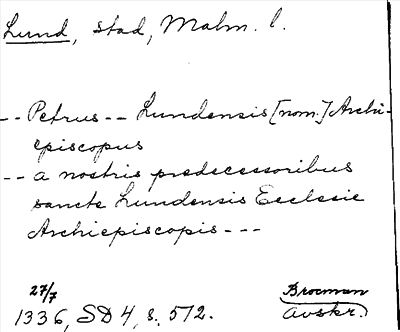 Lund, stad, Malm. l.
-- Petrus -- Lundensis [nom.] Archi-
episcopus
-- a nostris predecessoribus
sancte Lundensis Ecclesie
Archiepiscopis ---
27/7
1336, SD 4, s. 572.
Brocman
avskr.